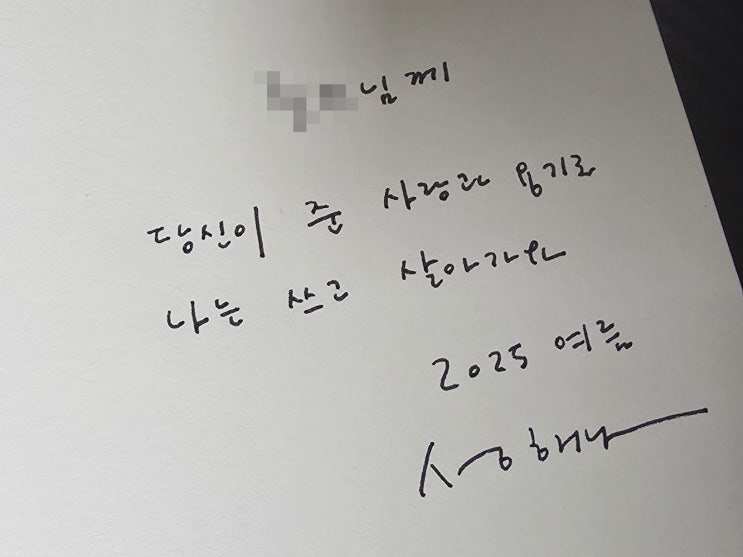 님께
당신이 준 사랑과 용기로
나는 쓰고 살아가요
2025 여름
성해나